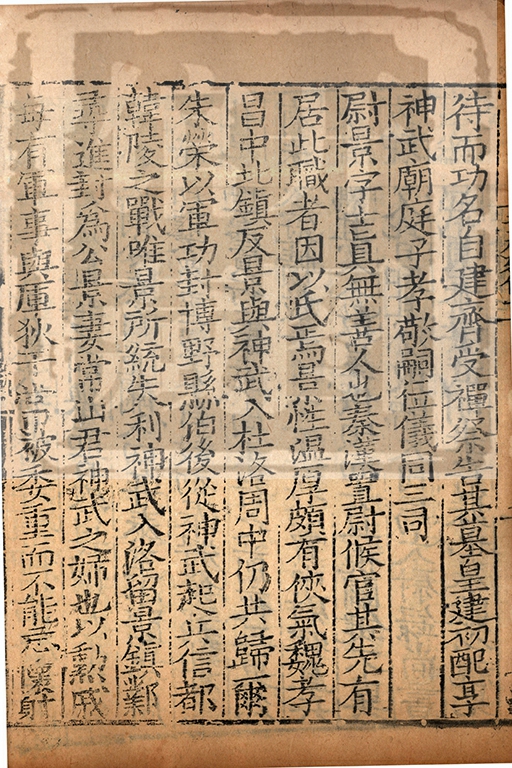 待而功名自建齊受禪祭告其墓皇建初配享
神武廟庭子孝敵嗣位儀同三司
尉景字士真無善人也秦漢置尉候官其先有
居此職者因以氏焉景性溫厚頗有俠氣魏孝
昌中北鎮反景與神武入杜洛周中仍共歸爾
朱榮以軍功封博野縣伯後從神武起兵信都
韓陵之戰唯景所統失利神武入洛留景鎮鄴
尋進封為公景妻常山君神武之姉也以勲戚
每有軍事與厙狄干常被委重而不能忘懷射